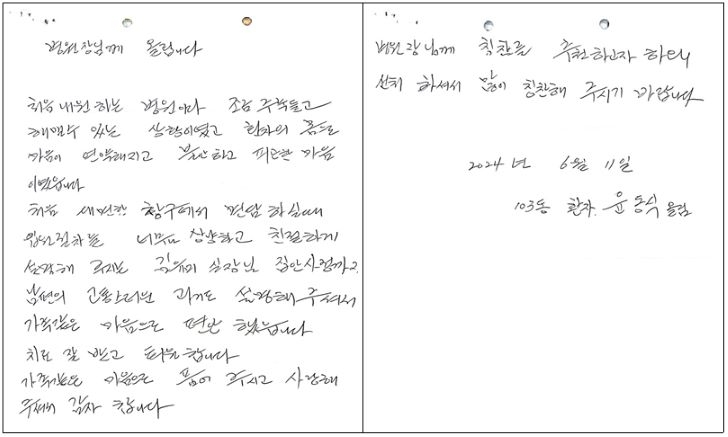 병원장님께 올립니다
처음 내원 하는 병원이다 조금 주눅들고
헤맬수 있는 상황이였고 환자의 몸으로
마음이 연약해지고 불안하고 피곤한 마음
이였습니다
처음 세번만 창구에서 면담 하실때
입원절차를 너무나 상냥하고 친절하게
설명해 주시는 김유미 실장님 집안사정까지
남편의 고통스러운 과거도 설명해 주셔서
가족같은 마음으로 편안 했습니다
치료 잘 받고 퇴원 합니다
가족같은 마음으로 품어 주시고 사랑해
주셔서 감사 합니다
병원장님께 칭찬을 추천하고자 하오니
선처 하셔서 많이 칭찬해 주시기 바랍니다
2024년 6월 11일
103동 환자. 윤동식 올림